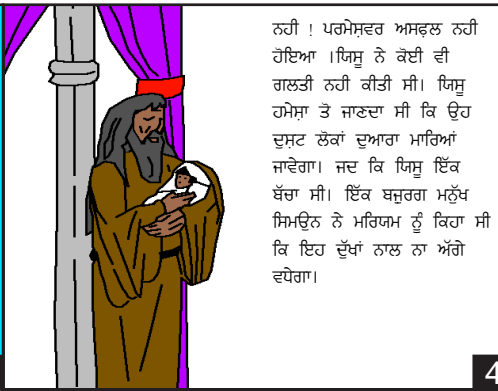 ਨਹੀ ! ਪਰਮੇਸ਼ਵਰ ਅਸਫ਼ਲ ਨਹੀ
ਹੋਇਆ ।ਯਿਸੂ ਨੇ ਕੋਈ ਵੀ
ਗਲਤੀ ਨਹੀ ਕੀਤੀ ਸੀ। ਯਿਸੂ
ਹਮੇਸ਼ਾ ਤੋ ਜਾਣਦਾ ਸੀ ਕਿ ਉਹ
ਦੁਸ਼ਟ ਲੋਕਾਂ ਦੁਆਰਾ ਮਾਰਿਆਂ
ਜਾਵੇਗਾ। ਜਦ ਕਿ ਯਿਸੂ ਇੱਕ
ਬੱਚਾ ਸੀ। ਇੱਕ ਬਜੁਰਗ ਮਨੁੱਖ
ਸਿਮਉਨ ਨੇ ਮਰਿਯਮ ਨੂੰ ਕਿਹਾ ਸੀ
ਕਿ ਇਹ ਦੁੱਖਾਂ ਨਾਲ ਨਾ ਅੱਗੇ
ਵਧੇਗਾ।
4